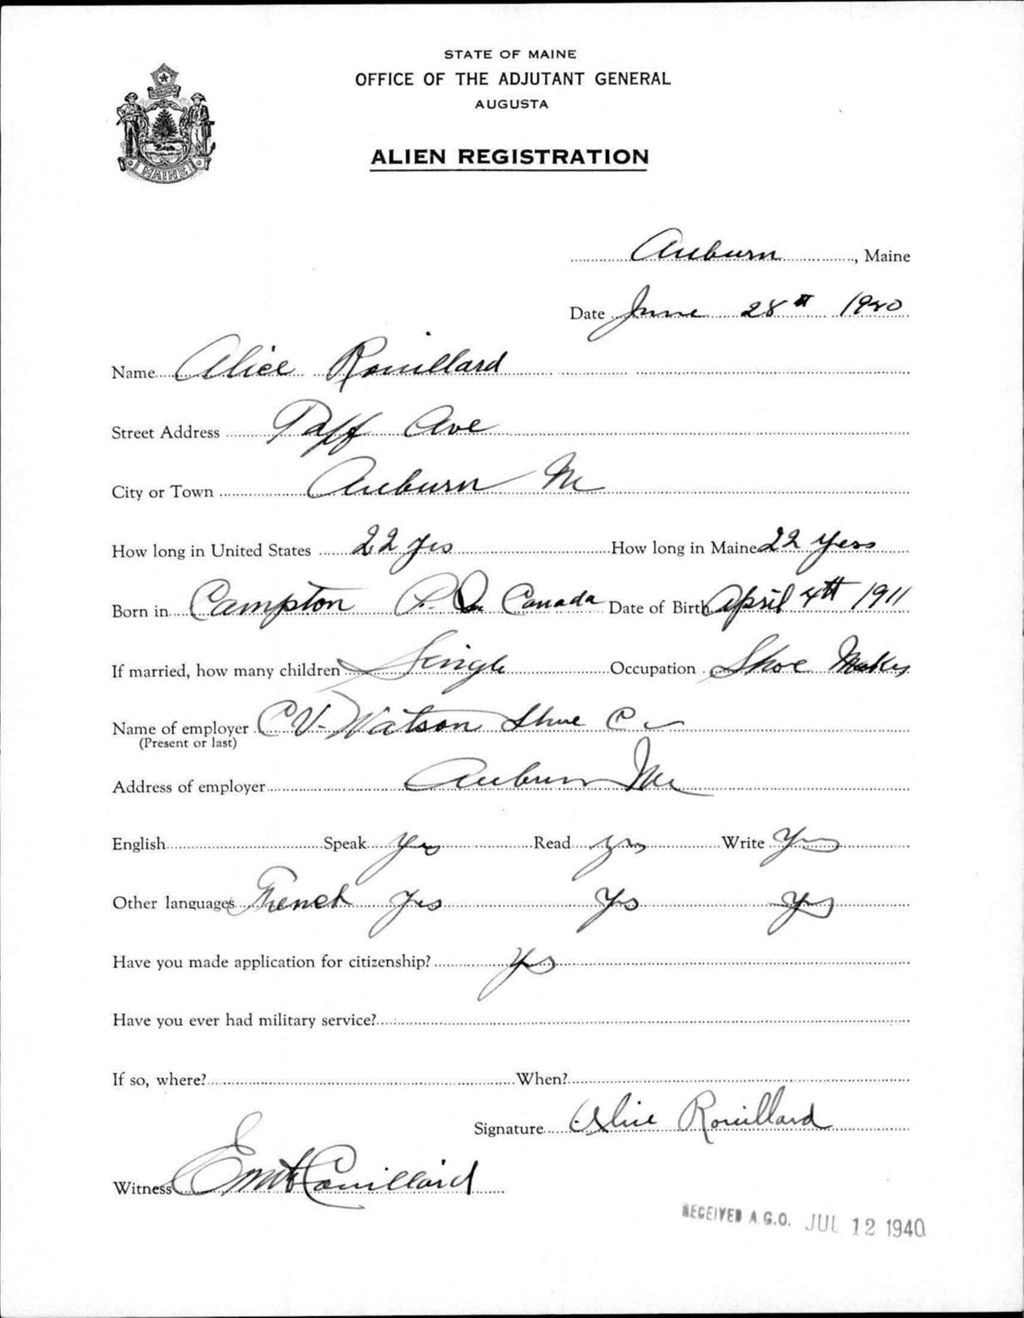 STATE OF MAINE
OFFICE OF THE ADJUTANT GENERAL
AUGUSTA
ALIEN REGISTRATION
MAINE
Auburn, Maine
Date June 28th 1940
Name Alice Rouillard
Street Address Taff Ave
City or Town Auburn Me
How long in United States 22 yrs How long in Maine 22 years
Born in Compton P. Q. Canada Date of Birth April 4th 1911
If married, how many children Single Occupation Shoe Maker
Name of employer C V. Watson Shoe Co
(Present or last)
Address of employer Auburn Me
English Speak Yes Read yes Write Yes
Other languages French Yes Yes Yes
Have you made application for citizenship? Yes
Have you ever had military service?
If so, where? When?
Signature Alice Rouillard
Witness Couillard
RECEIVED A.G.O. JUL 12 1940